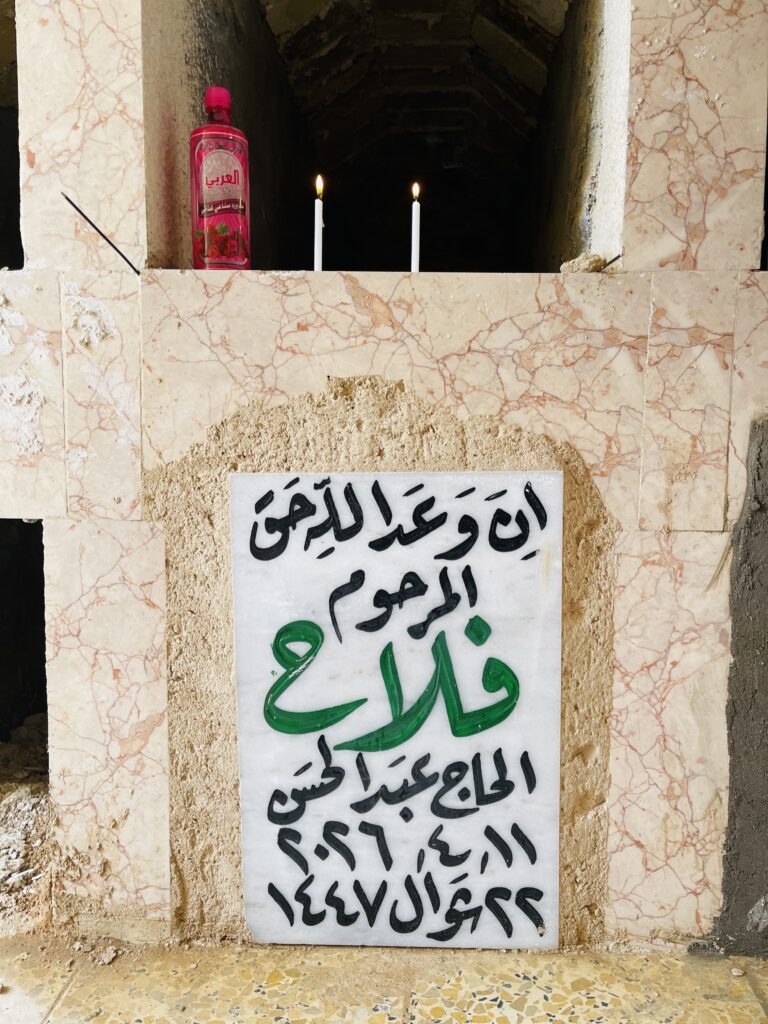 العربي
ان وعد الله حق
المرحوم
فلاح
الحاج عبد الحسن
٢٠٢٦ ٤ ١١
٢٢ شوال ١٤٤٧